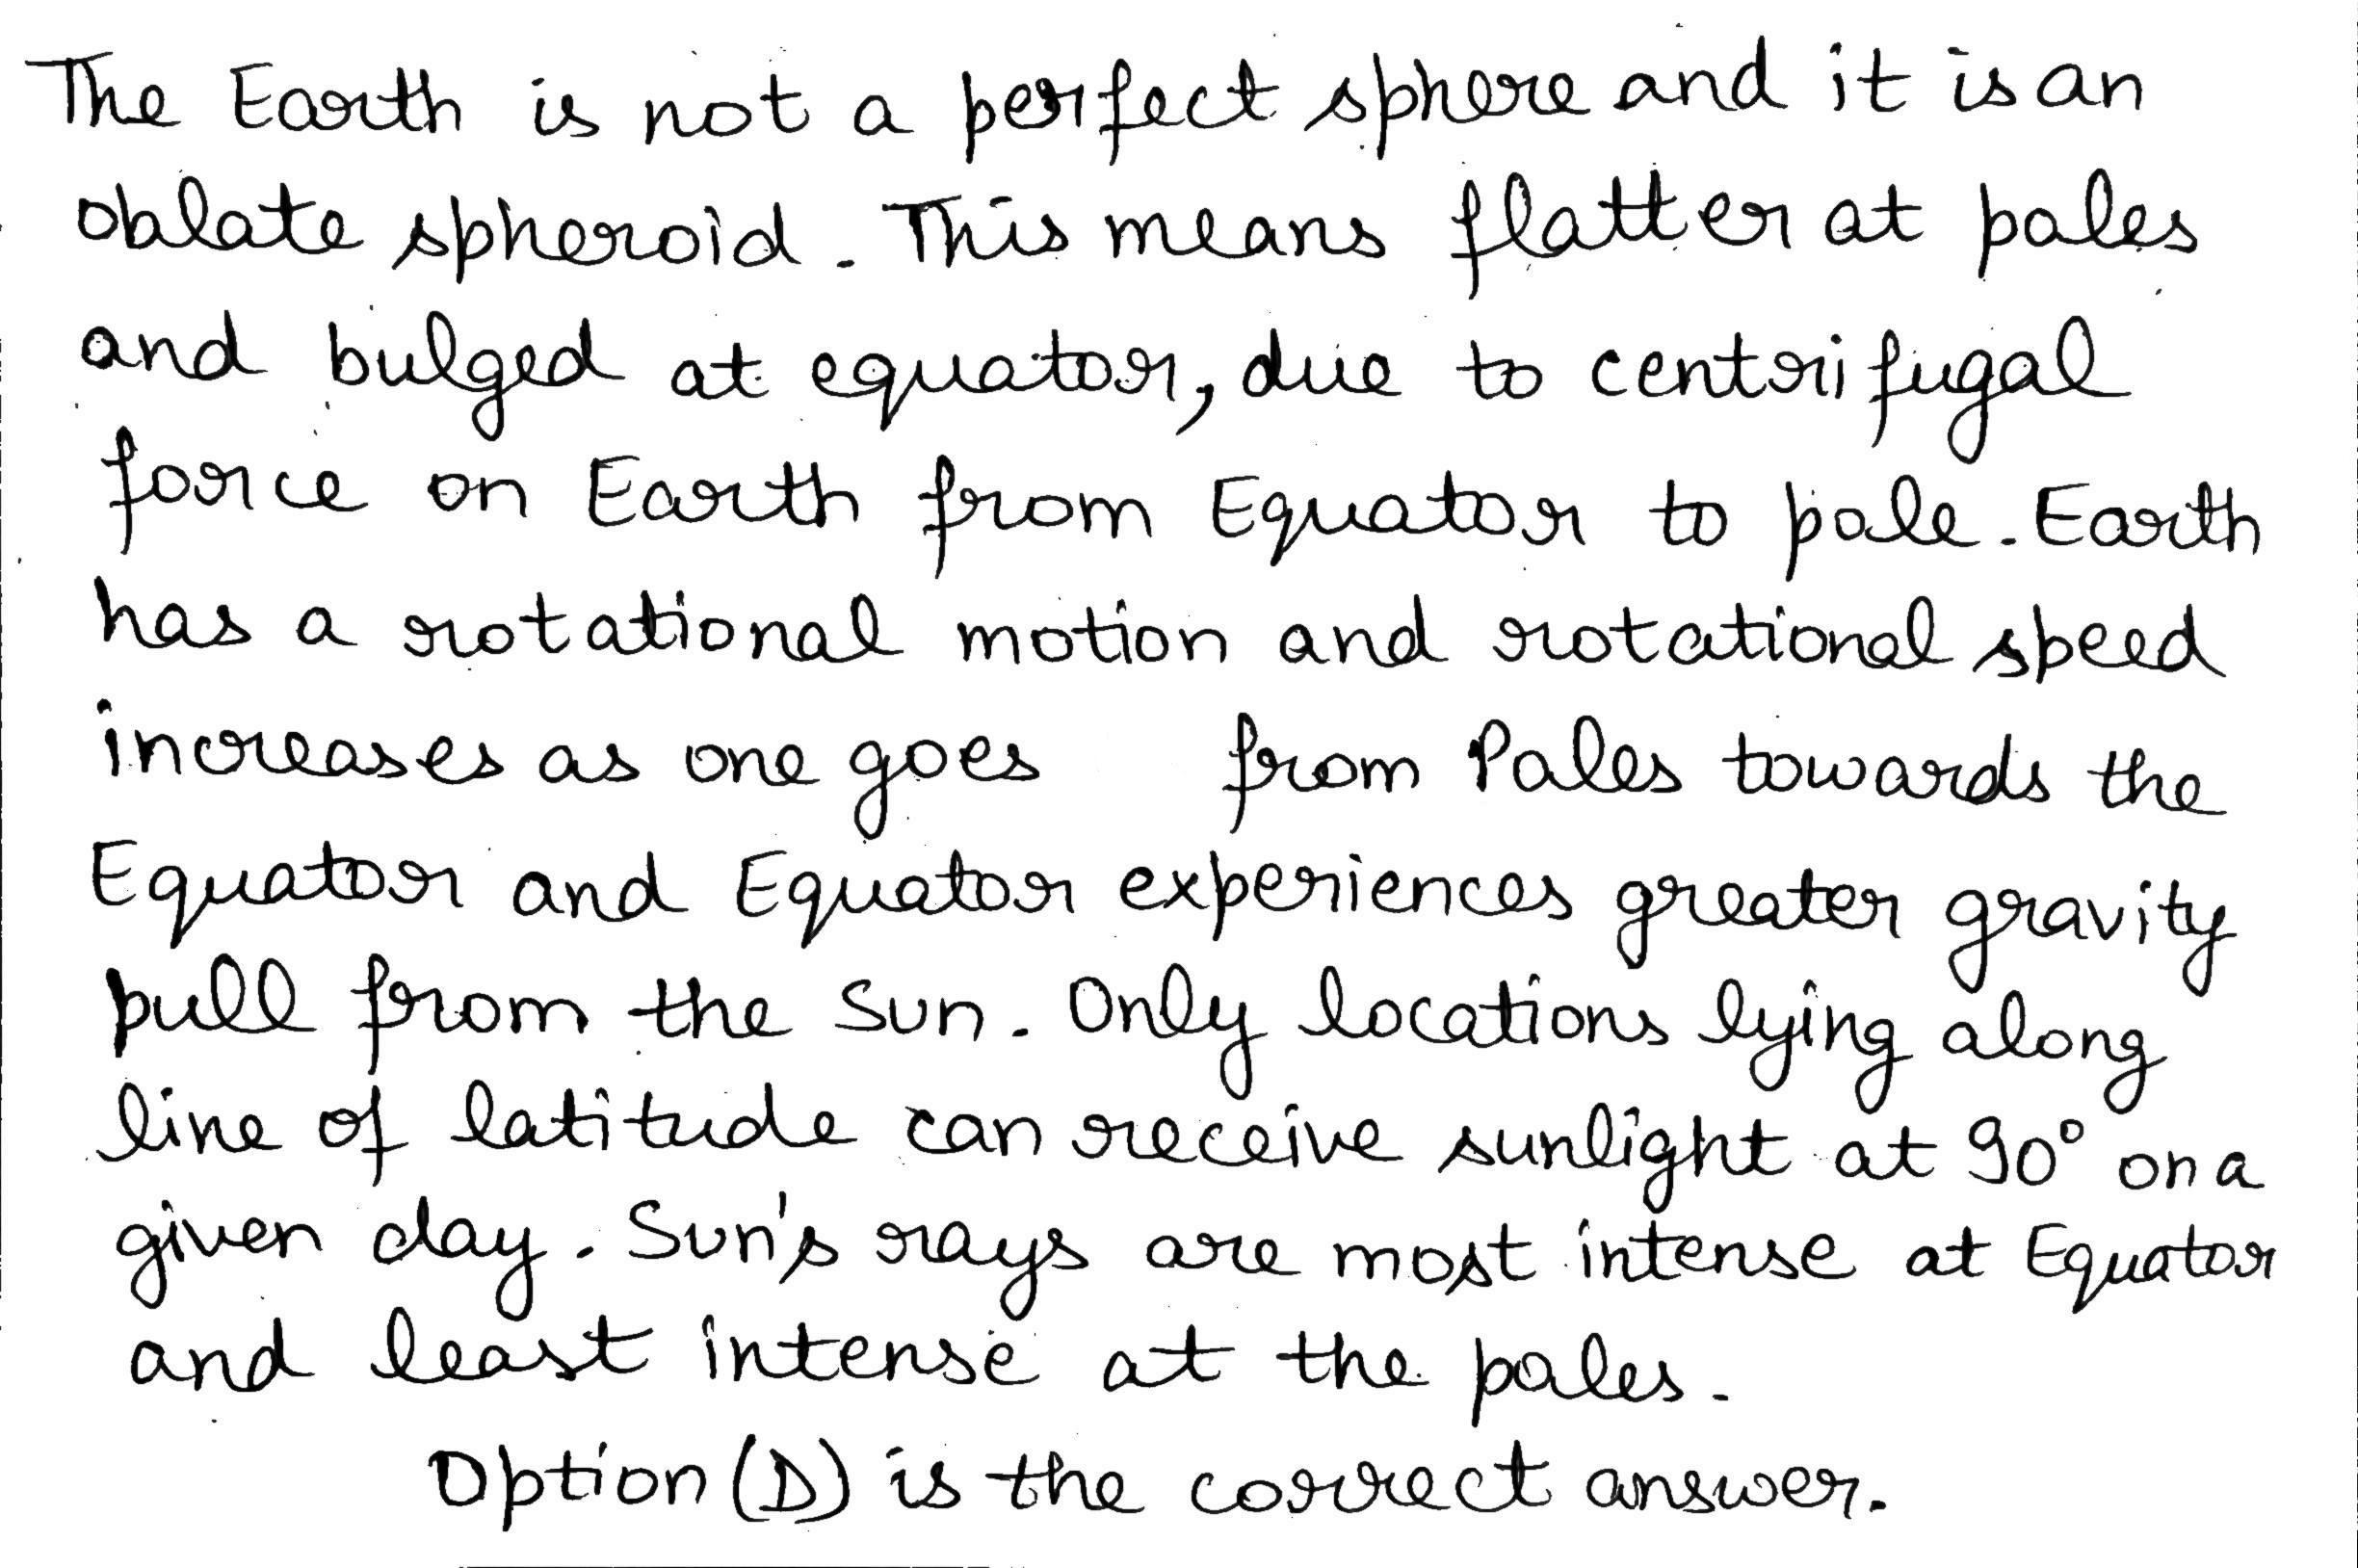 The Earth is not a perfect sphere and it is an
oblate spheroid. This means flatter at poles
and bulged at equator, due to centrifugal
force on Earth from Equator to pole. Earth
has a rotational motion and rotational speed
increases as one goes from Poles towards the
Equator and Equator experiences greater gravity
pull from the Sun. Only locations lying along
line of latitude can receive sunlight at 90° on a
given day. Sun's rays are most intense at Equator
and least intense at the poles.
Option (D) is the correct answer.